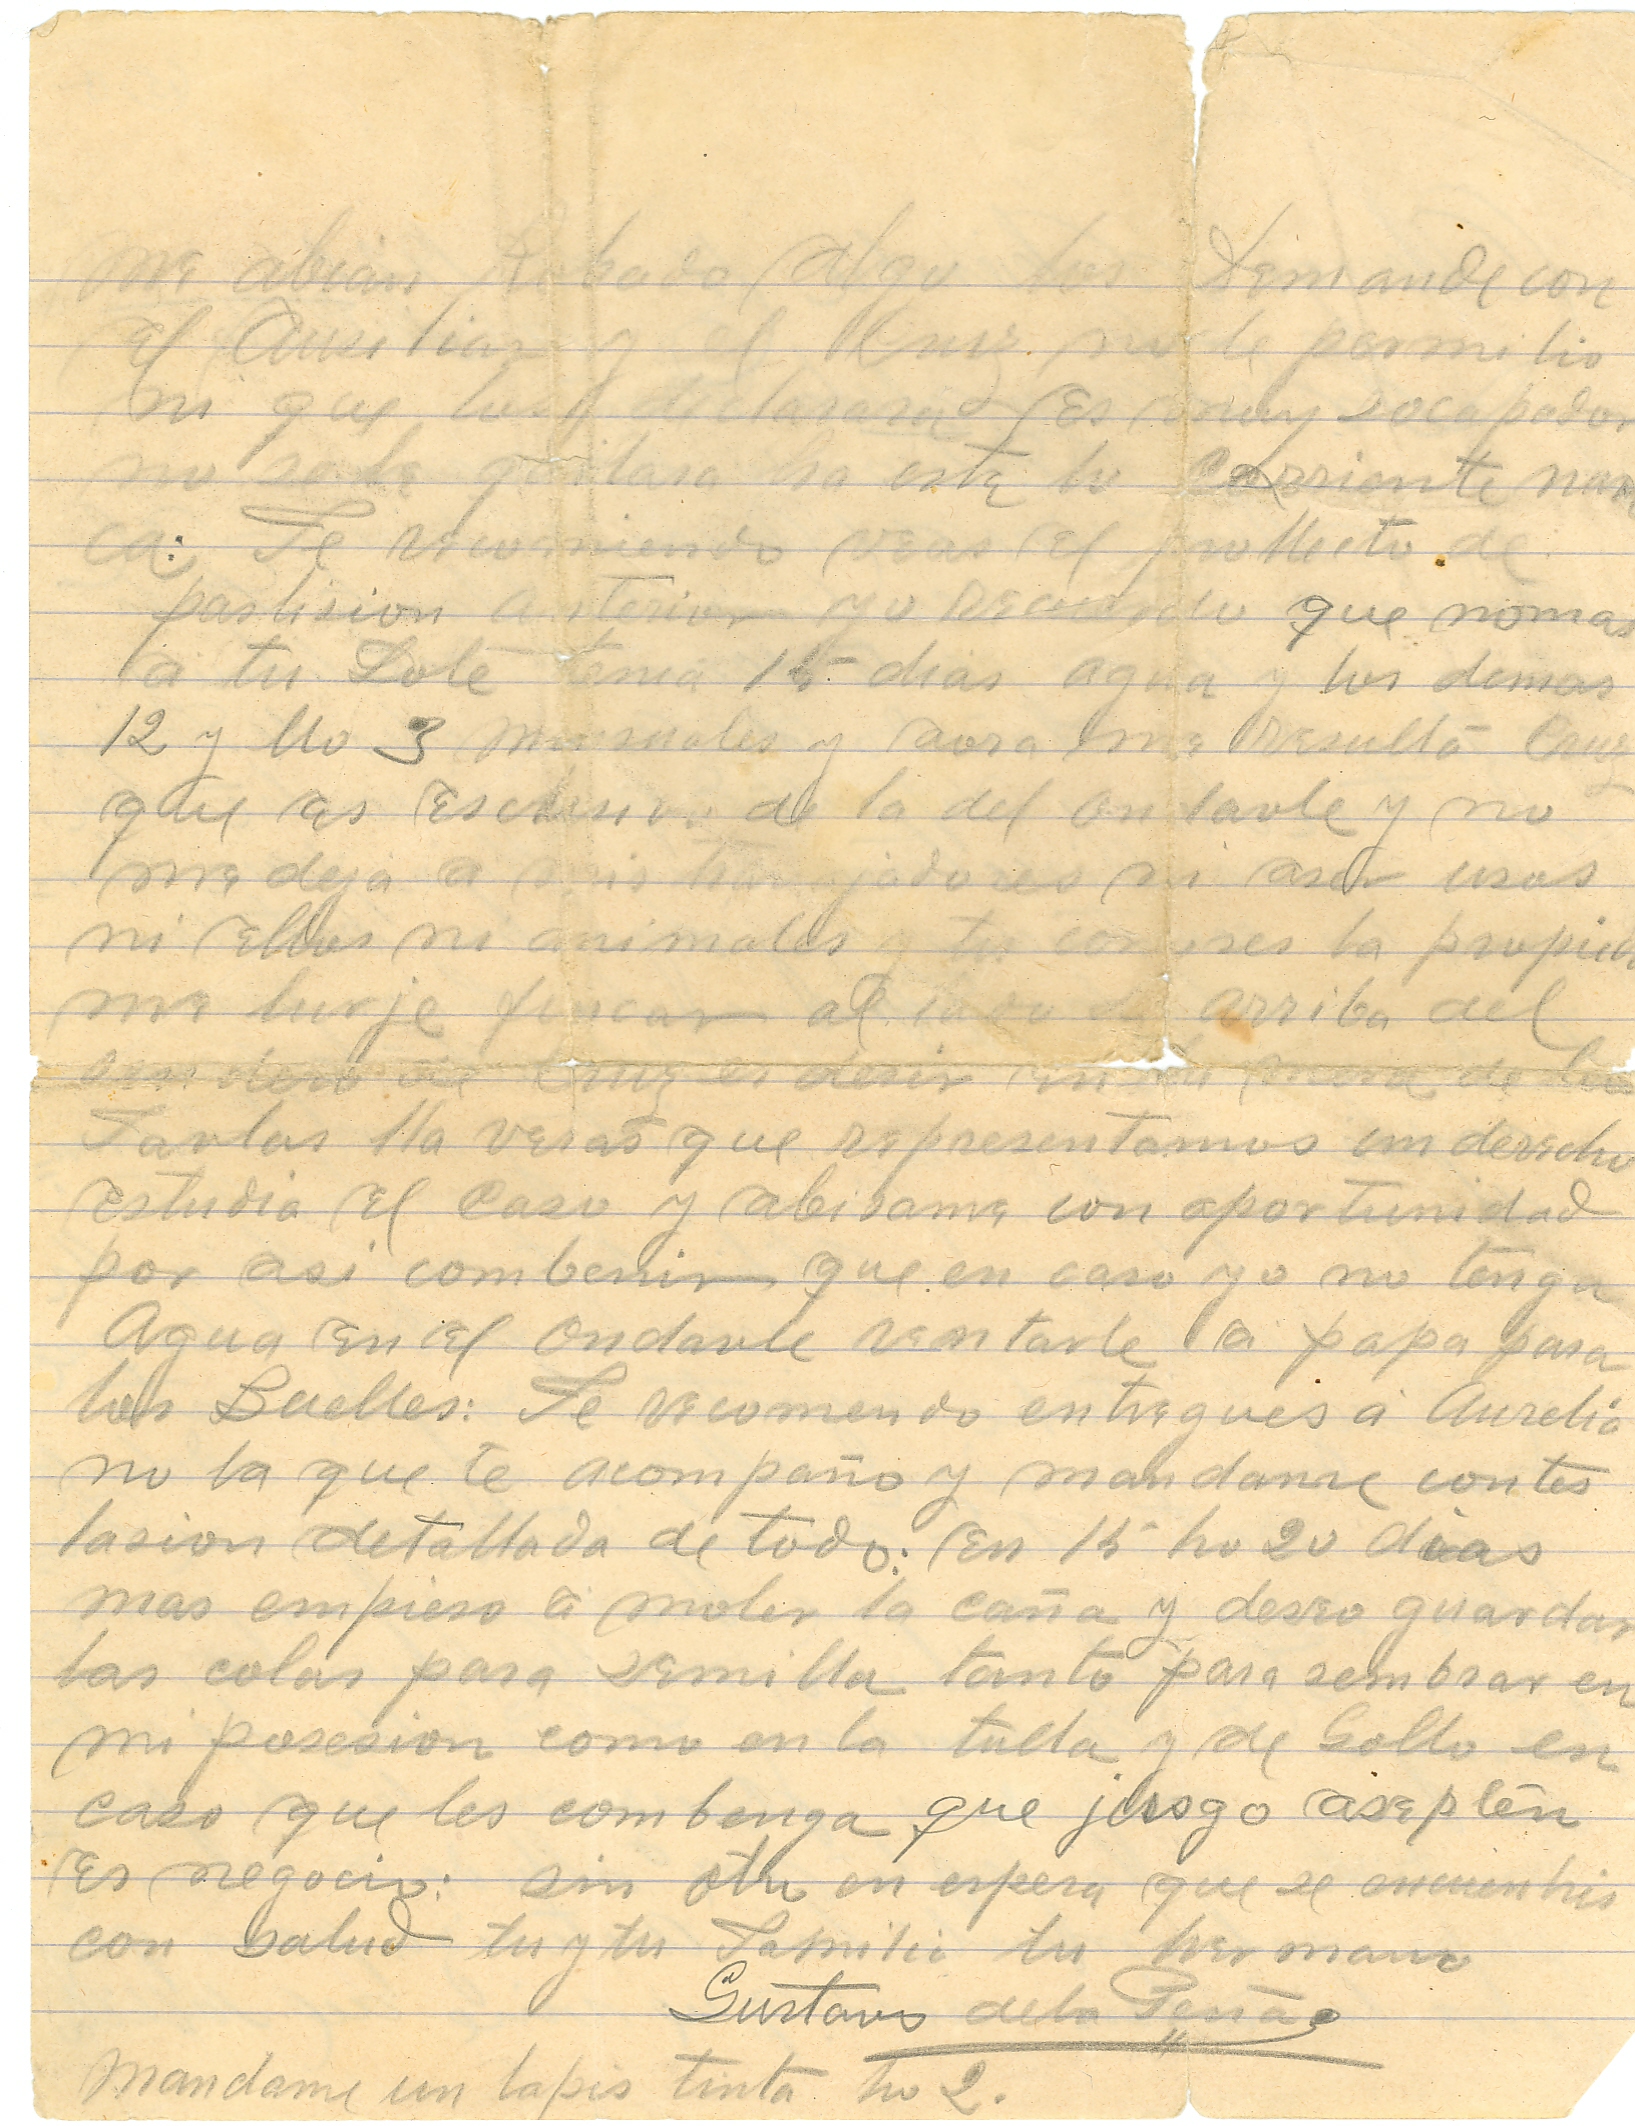 me abian Robado algo los demande con
el Auxiliar y el Cruz no le permitio
ni que los declarara es muy socapador
no se le quitara ha este lo corriente nun
ca: Te recomiendo veas el prollecto de
partision anterior yo recuerdo que nomas
a tu Lote tenia 15 dias agua y los demas
12 y llo 3 mensuales y aora me resulta Cruz
que es esclusivo de la del Ondable y no
me deja a mis trabajadores ni aser usos
ni ellos ni animales y tu conoses la propied
me hurje fincar al lado de arriba del
sendero de Cruz es desir en la
Tablas lla veras que representamos un derecho
estudia el caso y abisame con oportunidad
por asi combenir que en caso yo no tenga
Agua en el Ondable rentarle a papa para
los Buelles: Te recomendo entregues a Aurelia
no la que te acompaño y mandame contes
tasion detallada de todo: En 15 ho 20 dias
mas empieso a moler la caña y deseo guardar
las colas para semilla tanto para sembrar en
mi posesion como en la tulla y de Gollo en
caso que les combenga que jusgo asepten
es negocio: sin otro en espera que se encuentres
con salud tu y tu Familia tu hermano
Gustavo de la Peña
Mandame un lapis tinta ho 2.